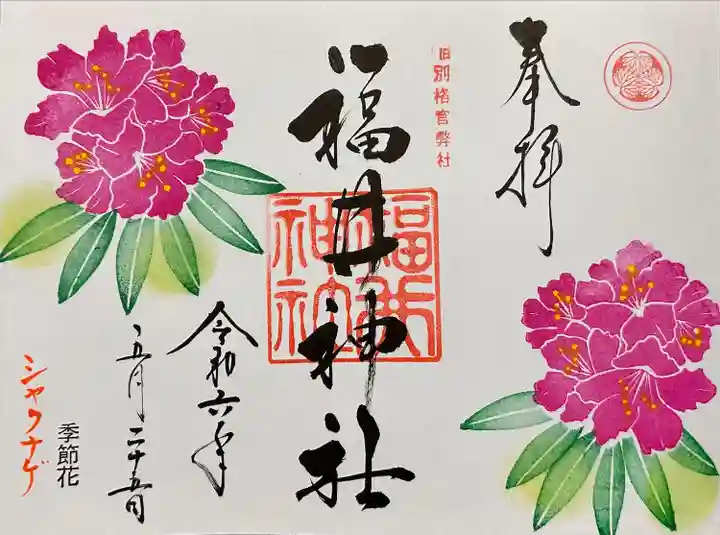 奉拝
旧別格官幣社
福井神社
福井
神社
令和六年
五月二十五日
季節花
シャクナゲ